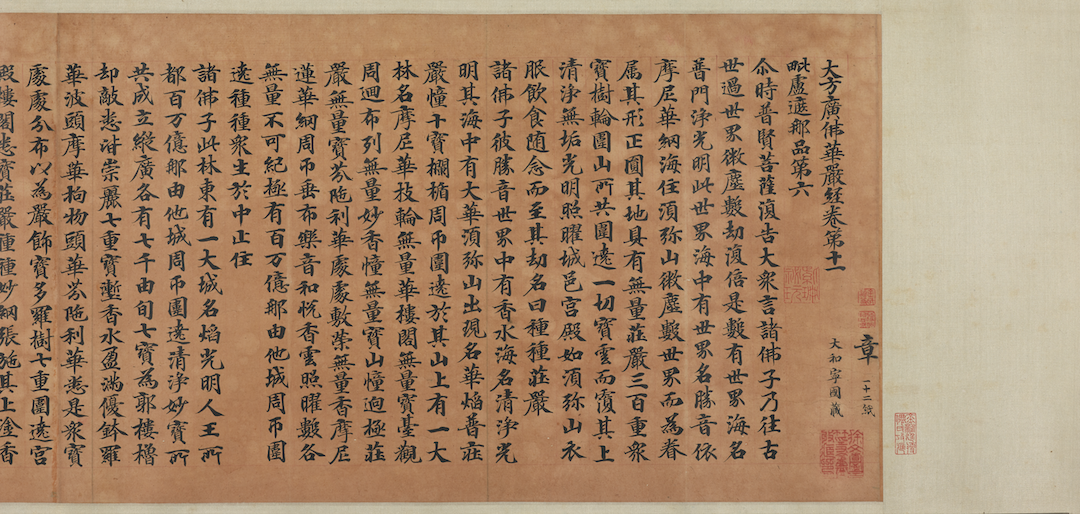 章 一十二紙
大和寧國藏
大方廣佛華嚴経卷第十一
毗盧遮那品第六
尒時普賢菩薩復告大衆言諸佛子乃往古
世過世界微塵數劫復倍是數有世界海名
普門淨光明此世界海中有世界名勝音依
摩尼華網海住湏弥山微塵數世界而為眷
属其形正圓其地具有無量莊嚴三百重衆
寶樹輪圍山所共圍遶一切寶雲而覆其上
清淨無垢光明照曜城邑宮殿如湏弥山衣
服飲食随念而至其劫名曰種種莊嚴
諸佛子彼勝音世界中有香水海名清淨光
明其海中有大華湏弥山出現名華焰普莊
嚴幢十寶欄楯周帀圍遶於其山上有一大
林名摩尼華枝輪無量華樓閣無量寶臺觀
周迴布列無量妙香幢無量寶山幢迥極莊
嚴無量寶芬陁利華處處敷榮無量香摩尼
蓮華網周帀垂布樂音和恱香雲照曜數各
無量不可紀極有百万億那由他城周帀圍
遶種種衆生於中止住
諸佛子此林東有一大城名焰光明人王所
都百万億那由他城周帀圍遶清淨妙寶所
共成立縱廣各有七千由旬七寶為郭樓櫓
却敵悉皆崇麗七重寶壍香水盈滿優鉢羅
華波頭摩華拘物頭華芬陁利華悉是衆寶
處處分布以為嚴飾寶多羅樹七重圍遶宮
殿樓閣悉寶莊嚴種種妙網張施其上塗香